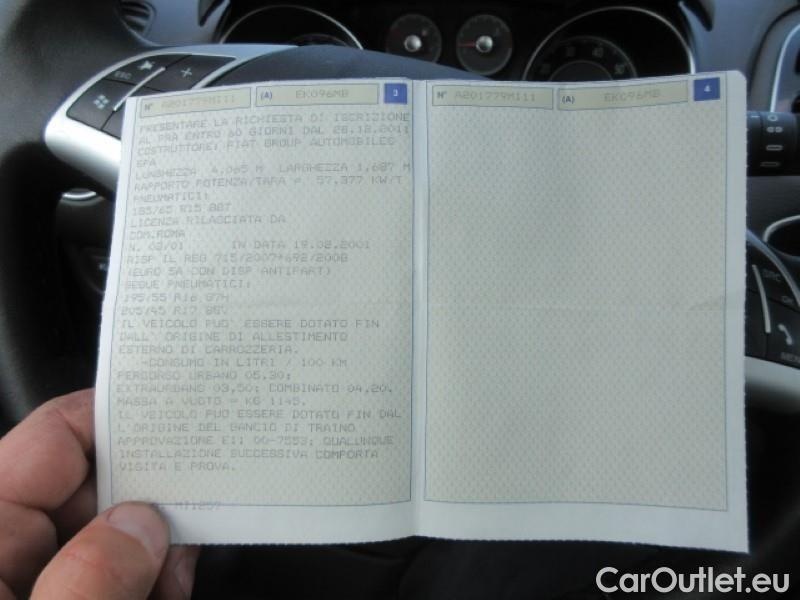 N° A201779MI11 (A) EK096MB 3
PRESENTARE LA RICHIESTA DI ISCRIZIONE
AL PRA ENTRO 60 GIORNI DAL 28.12.2011
COSTRUTTORE: FIAT GROUP AUTOMOBILES
SPA
LUNGHEZZA 4,065 M LARGHEZZA 1,687 M
RAPPORTO POTENZA/TARA = 57,377 KW/T
PNEUMATICI:
185/65 R15 88T
LICENZA RILASCIATA DA
COM.ROMA
N. 03/01 IN DATA 19.02.2001
RISP IL REG 715/2007*692/2008
(EURO 5A CON DISP ANTIPART)
SEGUE PNEUMATICI:
195/55 R16 87H
205/45 R17 88V
IL VEICOLO PUO' ESSERE DOTATO FIN
DALL' ORIGINE DI ALLESTIMENTO
ESTERNO DI CARROZZERIA.
CONSUMO IN LITRI / 100 KM
PERCORSO URBANO 05,30;
EXTRAURBANO 03,50; COMBINATO 04,20.
MASSA A VUOTO = KG 1145.
IL VEICOLO PUO' ESSERE DOTATO FIN DAL
L'ORIGINE DEL GANCIO DI TRAINO
APPROVAZIONE E11 00-7553; QUALUNQUE
INSTALLAZIONE SUCCESSIVA COMPORTA
VISITA E PROVA.
MI1257
N° A201779MI11 (A) EK096MB 4
ESC
CarOutlet.eu